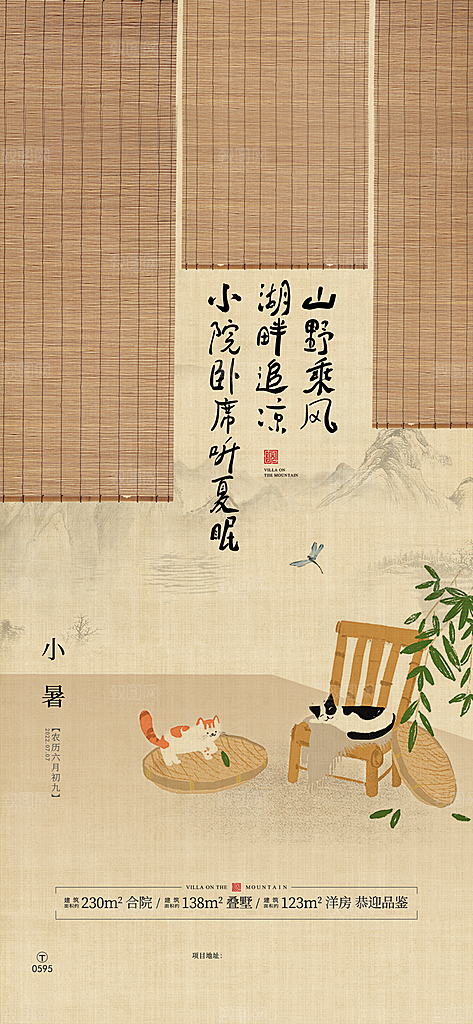 山野乘风
湖畔追凉
小院卧席听夏眠
VILLA ON
THE MOUNTAIN
小暑
【农历六月初九】
2022.07.07
VILLA ON THE MOUNTAIN
建筑面积约 230m² 合院 / 建筑面积约 138m² 叠墅 / 建筑面积约 123m² 洋房 恭迎品鉴
T
0595
项目地址：